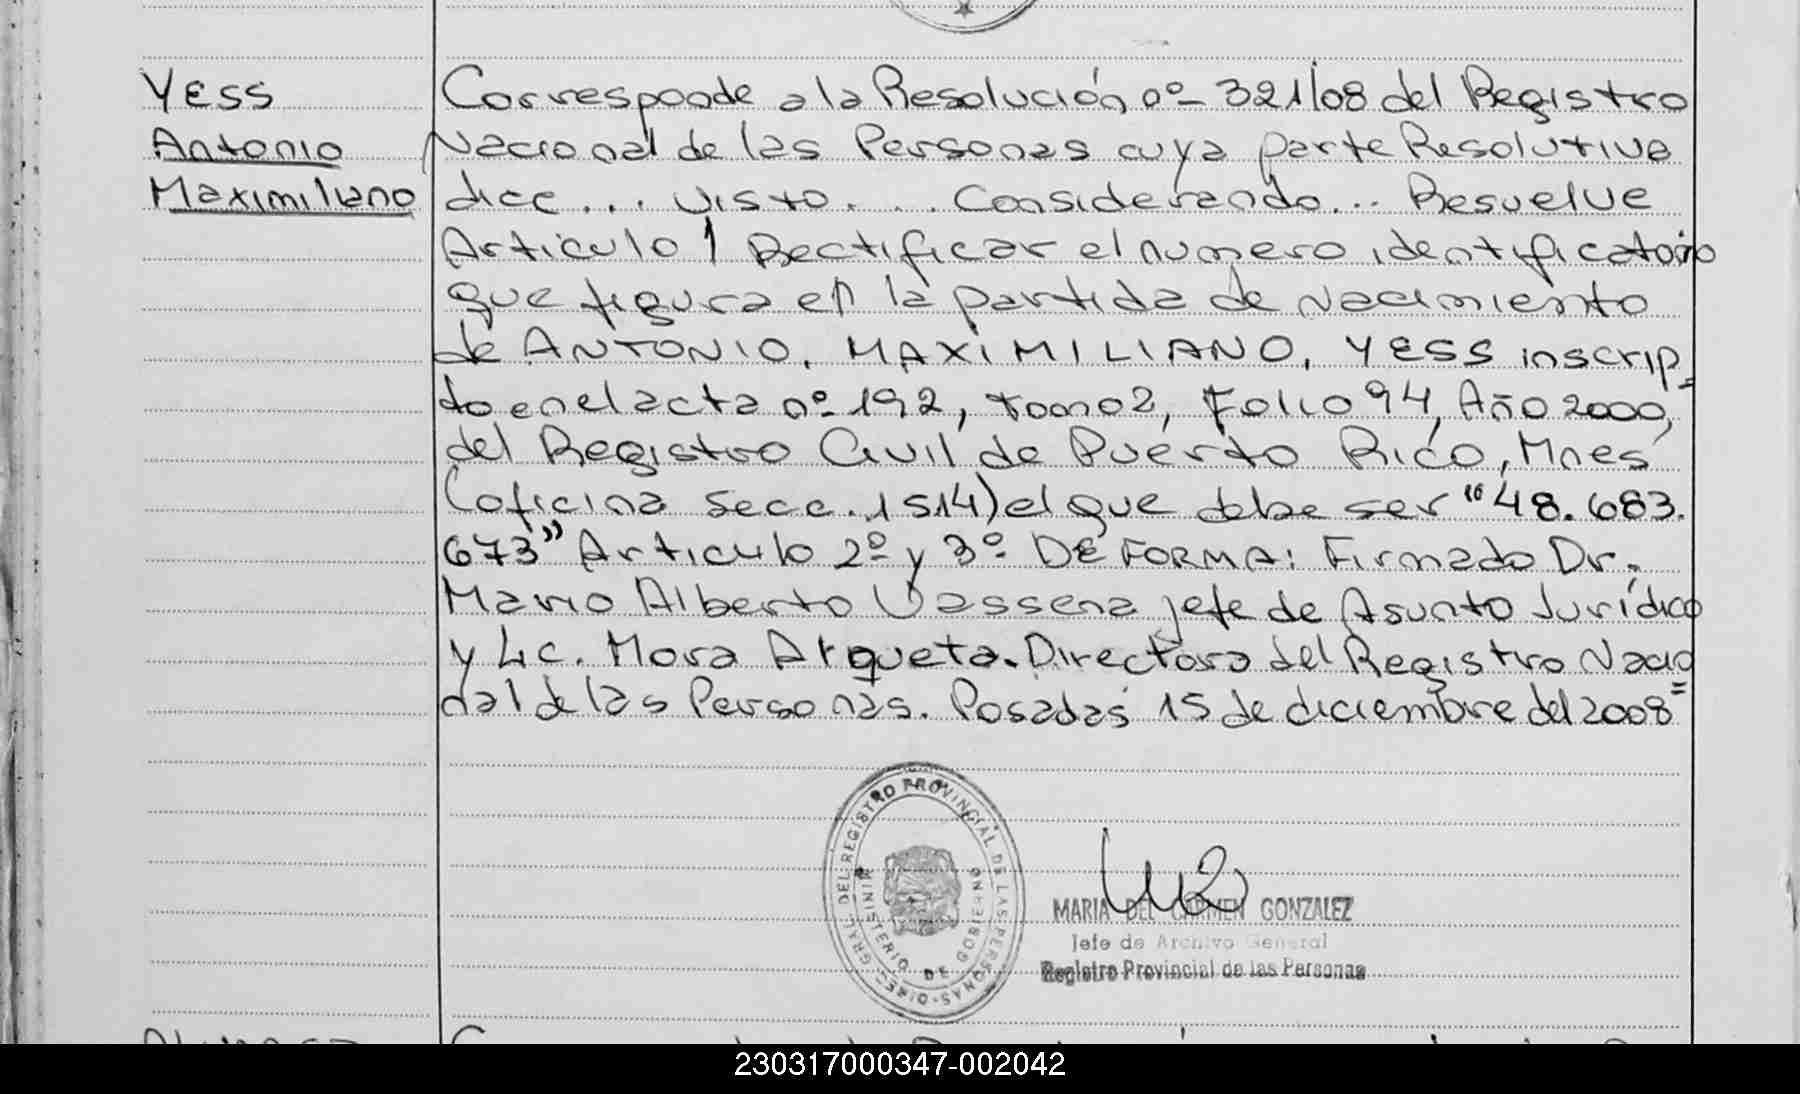 Yess
Antonio
Maximiliano
Corresponde a la Resolución nº 321/08 del Registro
Nacional de las Personas cuya parte Resolutiva
dice... Visto... Considerando... Resuelve
Articulo 1 Rectificar el numero identificatorio
que figura en la partida de Nacimiento
de ANTONIO, MAXIMILIANO, YESS inscrip_
to en el acta nº 192, tomo 2, Folio 94, Año 2000,
del Registro Civil de Puerto Rico, Mnes
(oficina Secc. 1514) el que debe ser "48.683.
673" Articulo 2º y 3º DE FORMA: Firmado Dr.
Mario Alberto Vassena jefe de Asunto Jurídico
y Lic. Mora Arqueta. Directora del Registro Nacio
nal de las Personas. Posadas 15 de diciembre del 2008=
DIREC. GRAL. DEL REGISTRO PROVINCIAL DE LAS PERSONAS
MINISTERIO DE GOBIERNO
MARIA DEL CARMEN GONZALEZ
Jefe de Archivo General
Registro Provincial de las Personas
230317000347-002042